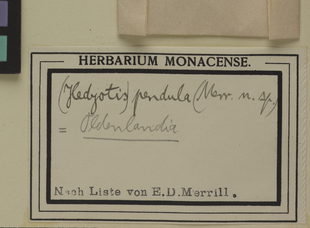 HERBARIUM MONACENSE.
(Hedyotis) pendula (Merr. n. sp.)
= Oldenlandia
Nach Liste von E.D.Merrill.